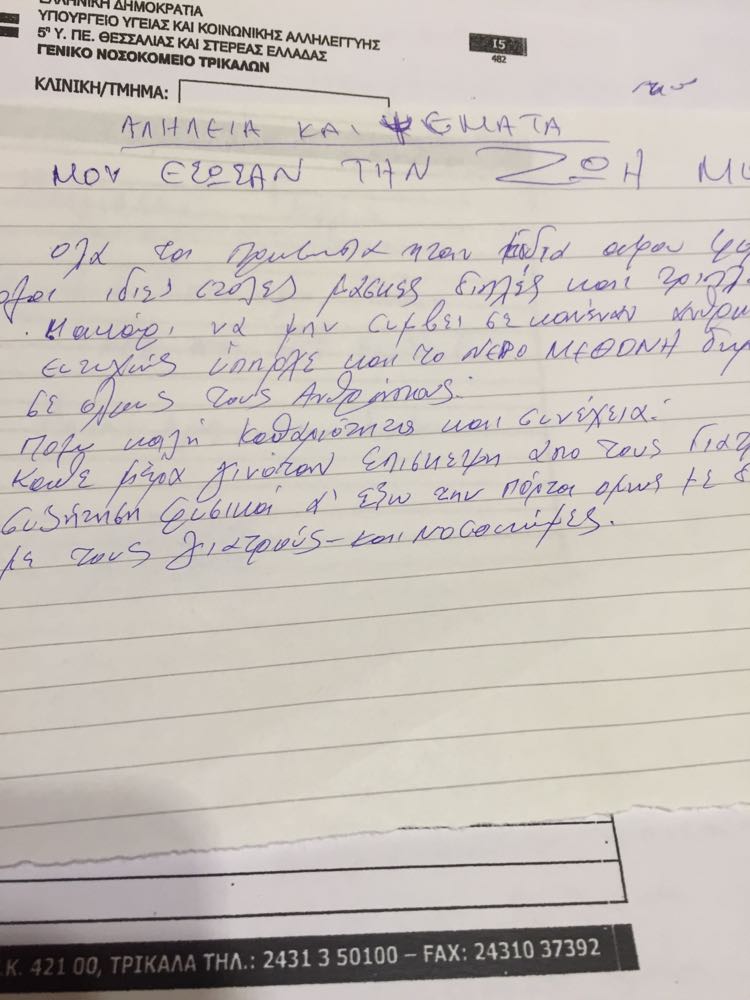 ΕΛΛΗΝΙΚΗ ΔΗΜΟΚΡΑΤΙΑ
ΥΠΟΥΡΓΕΙΟ ΥΓΕΙΑΣ ΚΑΙ ΚΟΙΝΩΝΙΚΗΣ ΑΛΛΗΛΕΓΓΥΗΣ
5η Υ. ΠΕ. ΘΕΣΣΑΛΙΑΣ ΚΑΙ ΣΤΕΡΕΑΣ ΕΛΛΑΔΑΣ
ΓΕΝΙΚΟ ΝΟΣΟΚΟΜΕΙΟ ΤΡΙΚΑΛΩΝ
15
482
ΚΛΙΝΙΚΗ/ΤΜΗΜΑ:
ΑΛΗΛΕΙΑ ΚΑΙ ΨΕΜΑΤΑ
ΜΟΥ ΕΣΩΣΑΝ ΤΗΝ ΖΩΗ
Ολα τα ηταν αφου
ιδιες στολες μάσκες διπλές και
Μακάρι να μην συμβεί σε κανέναν
ευτυχώς ύπηρξε και το ΝΕΡΟ ΜΕΘΩΝΗ
σε όλους τους Ανθρώπους.
Πολυ καλή καθαριότητα και συνέχεια.
Καθε μέρα γινόταν επισκεψη απο τους
συζήτηση φυσικά απ' έξω την πόρτα ομως με
με τους γιατρούς - και νοσοκόμες.
.Κ. 421 00, ΤΡΙΚΑΛΑ ΤΗΛ.: 2431 3 50100 – FAX: 24310 37392